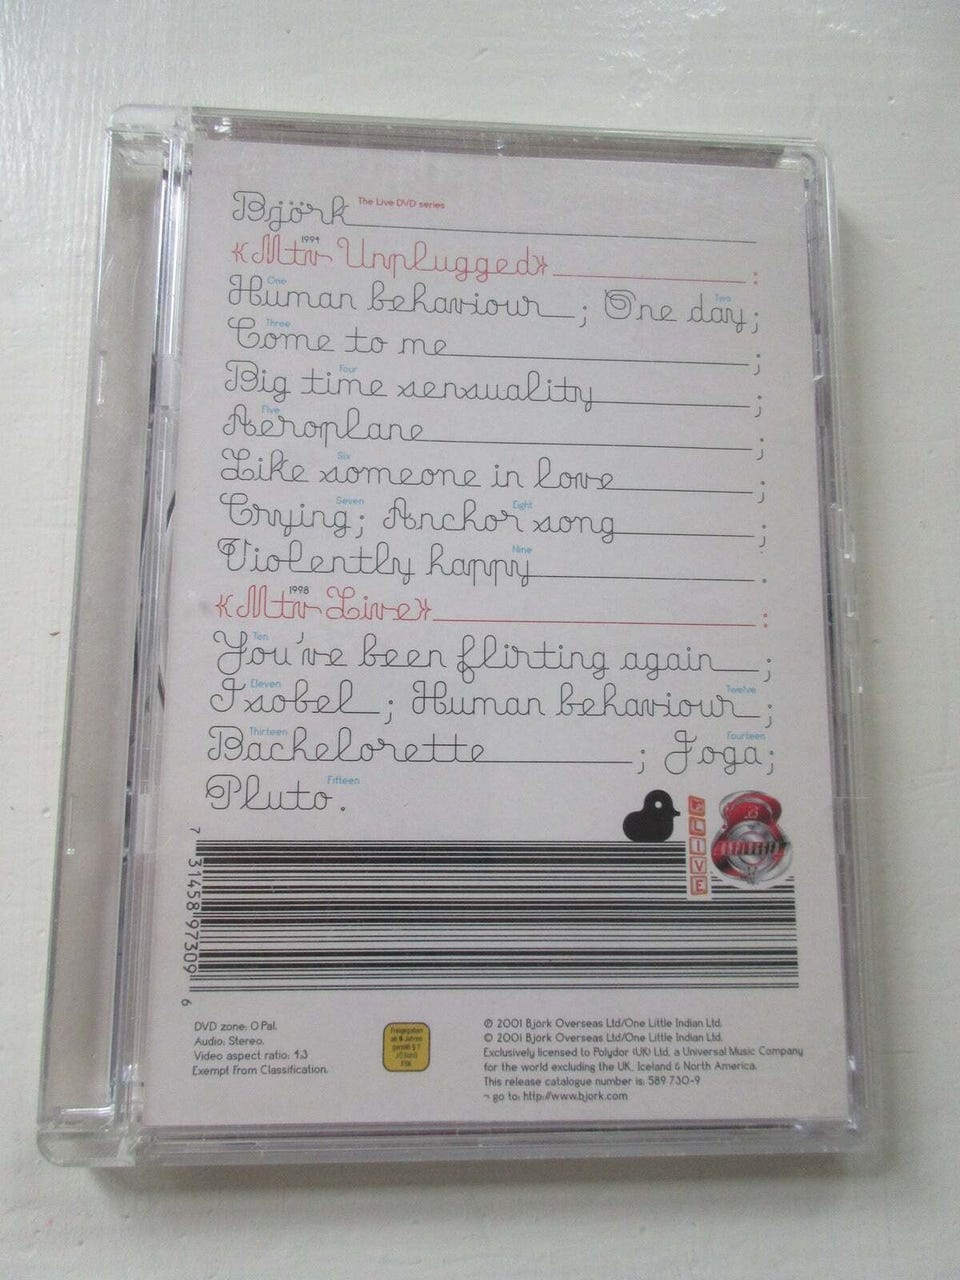 Björk The Live DVD series
1994
«Mtv Unplugged» :
One Two
Human behaviour ; One day;
Three
Come to me ;
Four
Big time sensuality ;
Five
Aeroplane ;
Six
Like someone in love ;
Seven Eight
Crying; Anchor song ;
Nine
Violently happy .
1998
«Mtv Live» :
Ten
You've been flirting again ;
Eleven Twelve
Isobel ; Human behaviour ;
Thirteen Fourteen
Bachelorette ; Joga;
Fifteen
Pluto.
LIVE
7 31458 97309 6
DVD zone: 0 Pal.
Audio: Stereo.
Video aspect ratio: 4:3
Exempt From Classification.
Freigegeben
ab 6 Jahren
gemäß § 7
JÖSchG
FSK
℗ 2001 Björk Overseas Ltd/One Little Indian Ltd.
© 2001 Björk Overseas Ltd/One Little Indian Ltd.
Exclusively licensed to Polydor (UK) Ltd. a Universal Music Company
for the world excluding the UK, Iceland & North America.
This release catalogue number is: 589 730-9
¬ go to: http://www.bjork.com